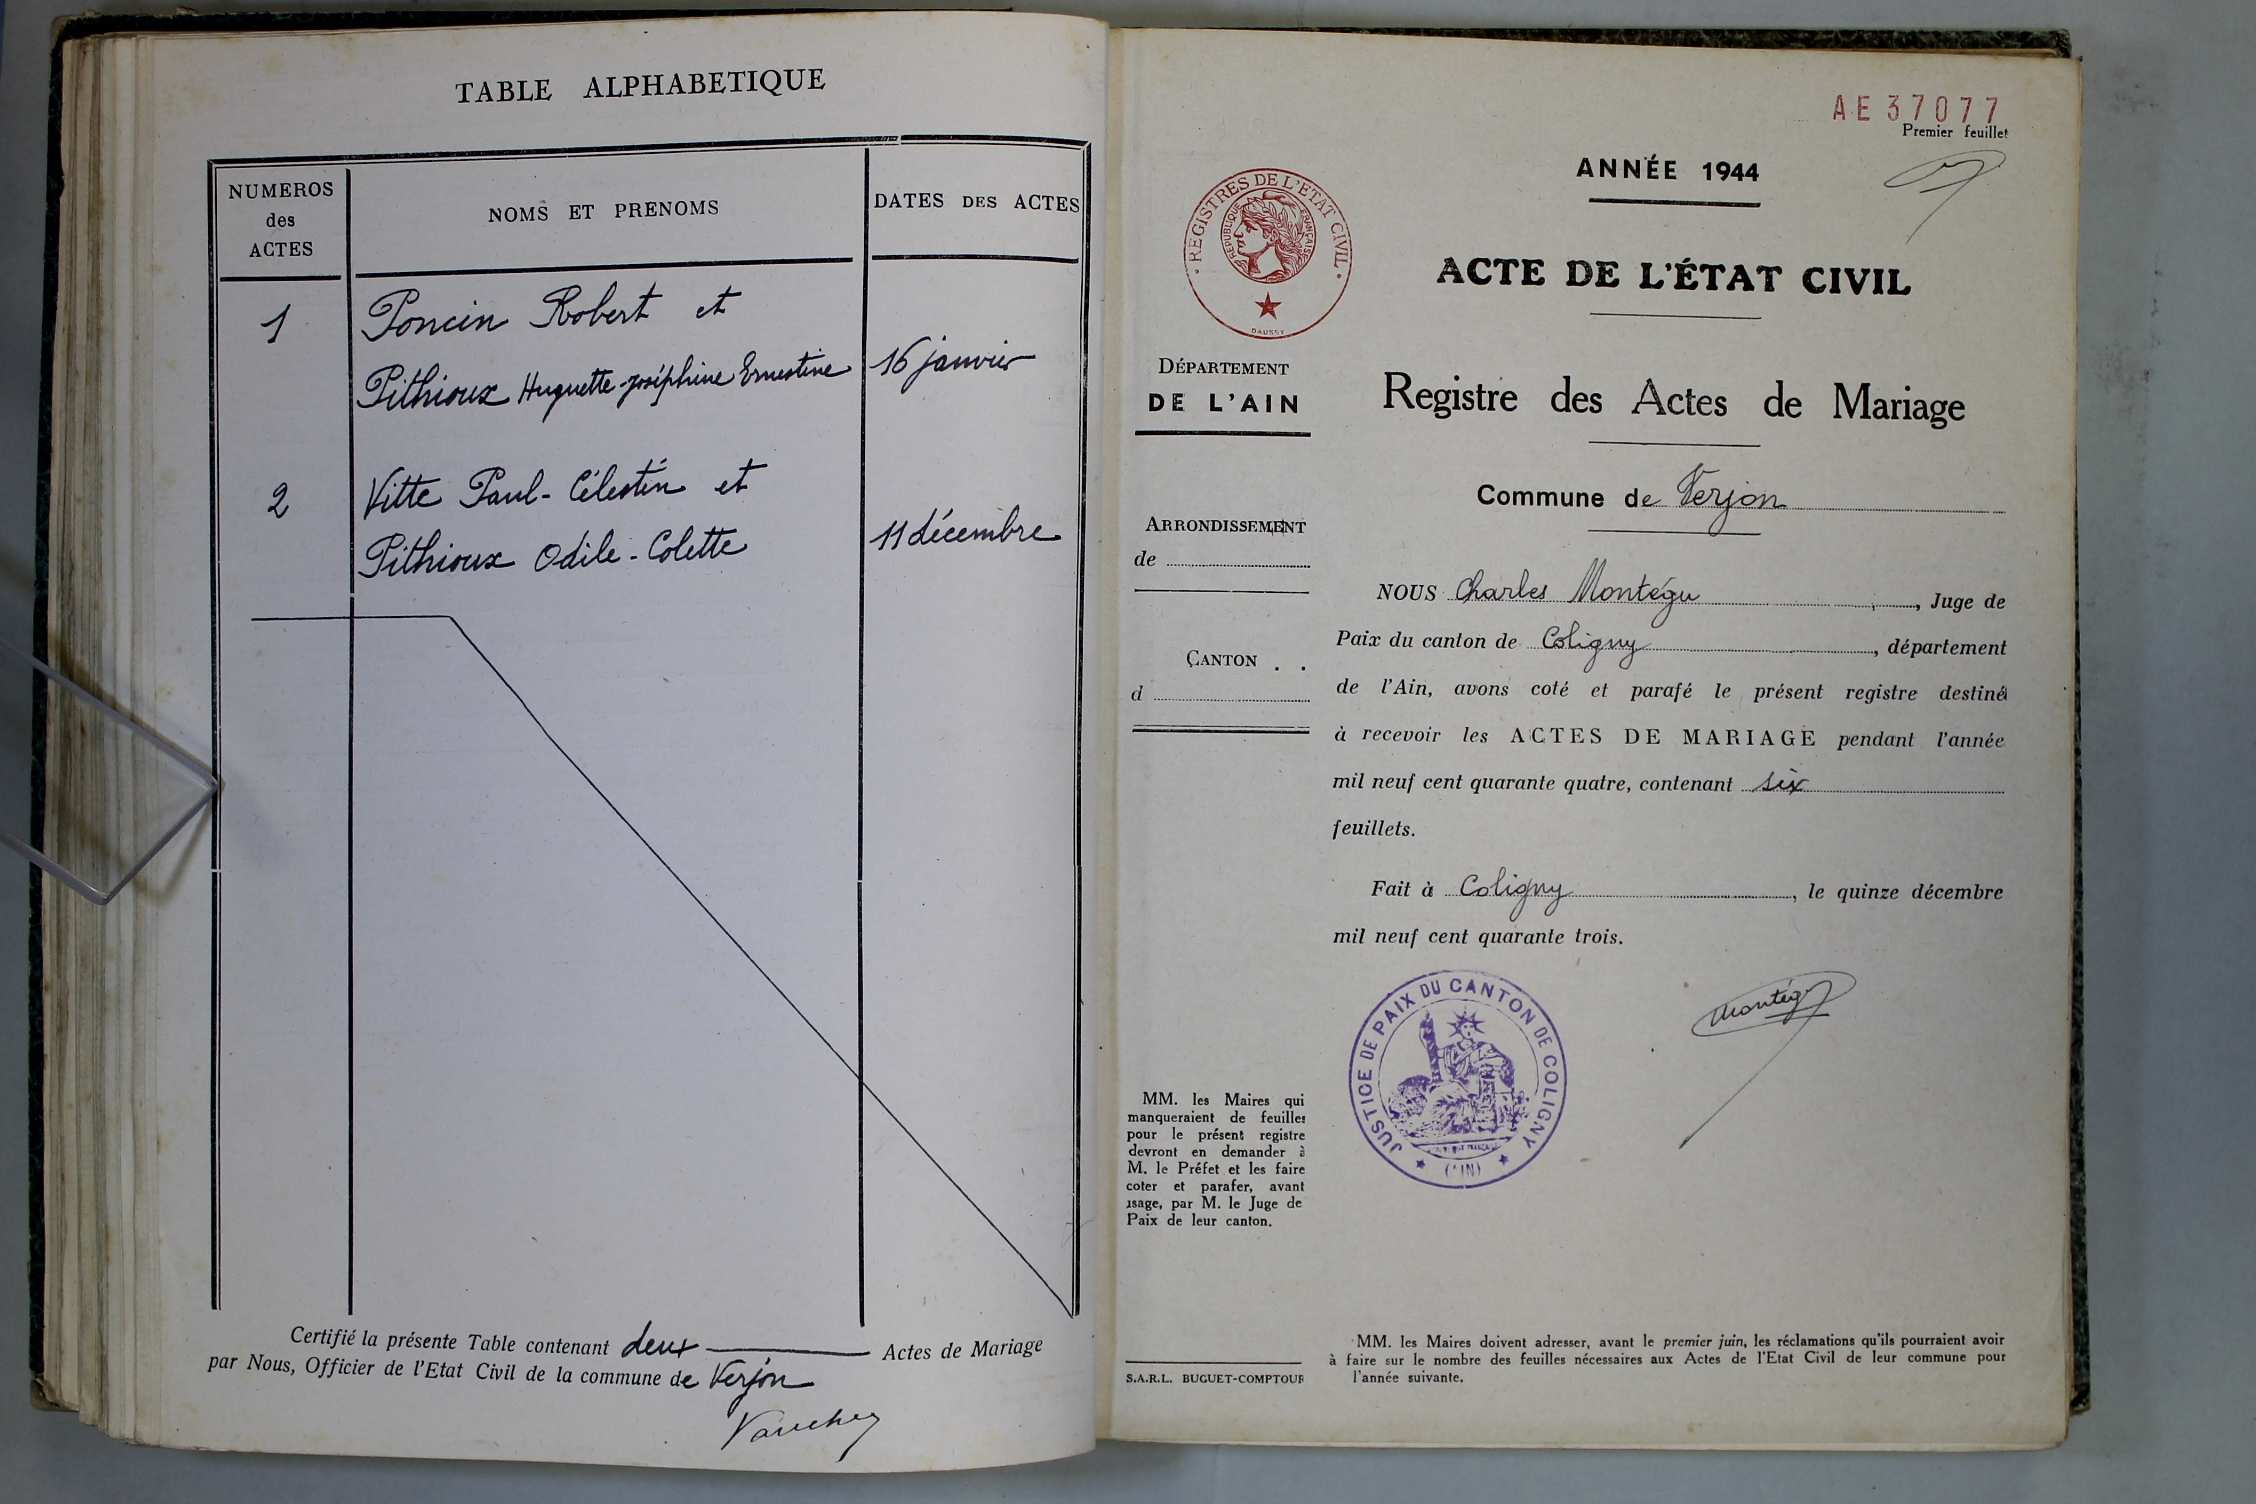 TABLE ALPHABETIQUE
NUMEROS
des
ACTES
NOMS ET PRENOMS
DATES DES ACTES
1
Poncin Robert et
Pithioux Huguette-Joséphine Ernestine
16 janvier
2
Vitte Paul-Célestin et
Pithioux Odile-Colette
11 décembre
Certifié la présente Table contenant deux Actes de Mariage
par Nous, Officier de l'Etat Civil de la commune de Verjon
AE37077
Premier feuillet
ANNÉE 1944
REGISTRES DE L'ETAT CIVIL
REPUBLIQUE FRANÇAISE
DAUSSY
ACTE DE L'ÉTAT CIVIL
DÉPARTEMENT
DE L'AIN
Registre des Actes de Mariage
Commune de Verjon
ARRONDISSEMENT
de
CANTON . .
d
NOUS Charles Montégu, Juge de
Paix du canton de Coligny, département
de l'Ain, avons coté et parafé le présent registre destiné
à recevoir les ACTES DE MARIAGE pendant l'année
mil neuf cent quarante quatre, contenant six
feuillets.
Fait à Coligny, le quinze décembre
mil neuf cent quarante trois.
JUSTICE DE PAIX DU CANTON DE COLIGNY
Montégu
MM. les Maires qui
manqueraient de feuilles
pour le présent registre
devront en demander à
M. le Préfet et les faire
coter et parafer, avant
usage, par M. le Juge de
Paix de leur canton.
S.A.R.L. BUGUET-COMPTOUR
MM. les Maires doivent adresser, avant le premier juin, les réclamations qu'ils pourraient avoir
à faire sur le nombre des feuilles nécessaires aux Actes de l'Etat Civil de leur commune pour
l'année suivante.